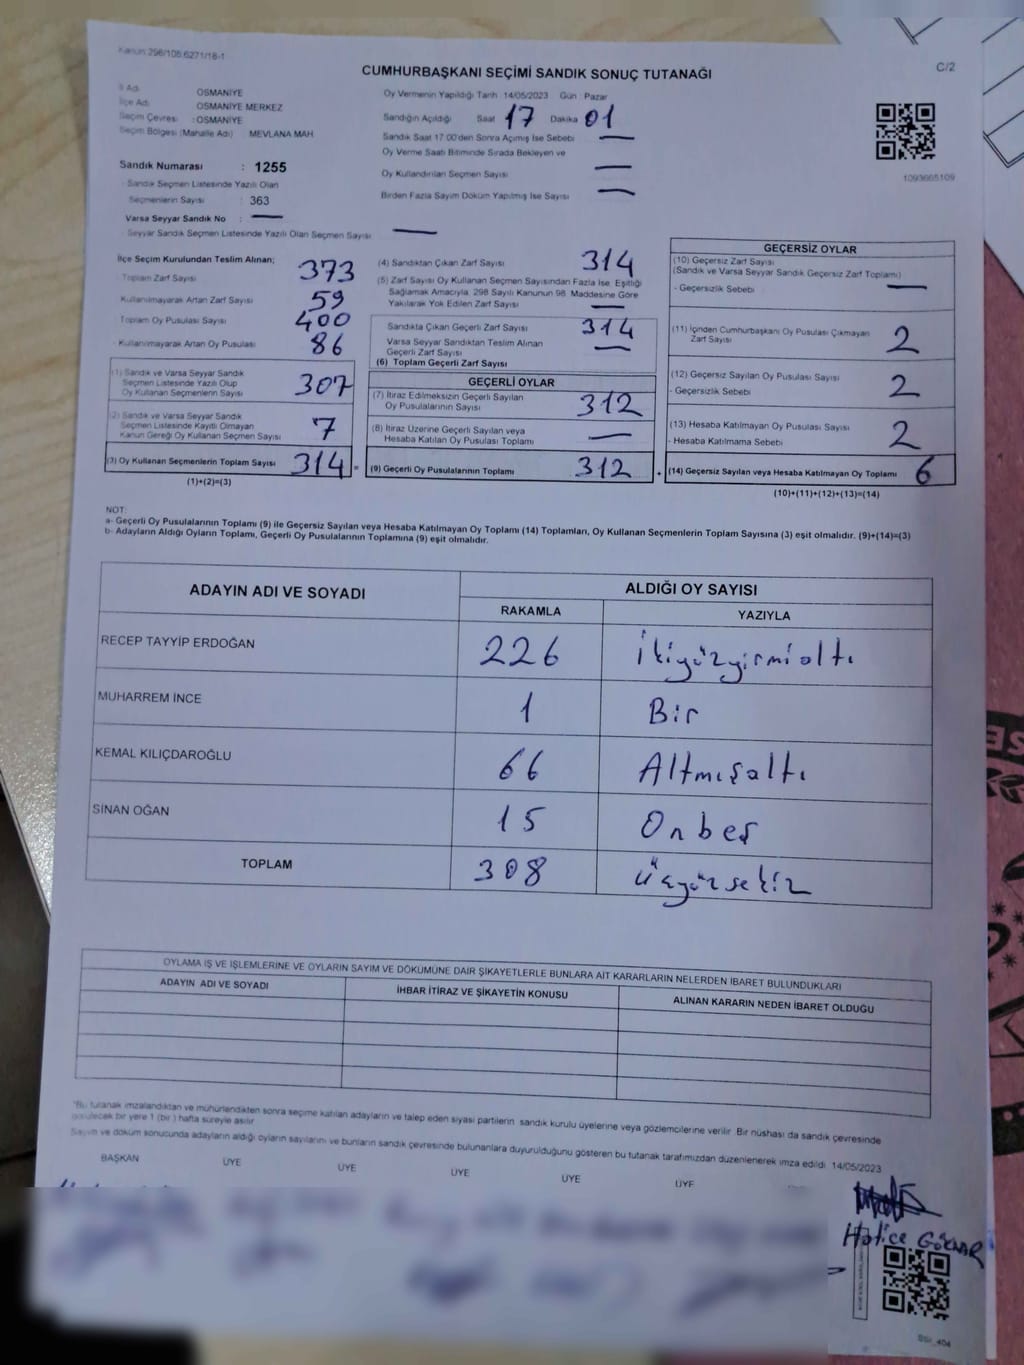 Kanun:298/105,6271/18-1
CUMHURBAŞKANI SEÇİMİ SANDIK SONUÇ TUTANAĞI
C/2
İl Adı OSMANİYE
İlçe Adı OSMANİYE MERKEZ
Seçim Çevresi : OSMANİYE
Seçim Bölgesi (Mahalle Adı) MEVLANA MAH.
Oy Vermenin Yapıldığı Tarih :14/05/2023 Gün : Pazar
Sandığın Açıldığı Saat 17 Dakika 01
Sandık Saat 17:00'den Sonra Açılmış İse Sebebi —
Oy Verme Saati Bitiminde Sırada Bekleyen ve
Oy Kullandırılan Seçmen Sayısı —
Birden Fazla Sayım Döküm Yapılmış İse Sayısı —
1093665109
Sandık Numarası : 1255
Sandık Seçmen Listesinde Yazılı Olan
Seçmenlerin Sayısı : 363
Varsa Seyyar Sandık No : —
Seyyar Sandık Seçmen Listesinde Yazılı Olan Seçmen Sayısı —
İlçe Seçim Kurulundan Teslim Alınan;
Toplam Zarf Sayısı 373
Kullanılmayarak Artan Zarf Sayısı 59
Toplam Oy Pusulası Sayısı 400
Kullanılmayarak Artan Oy Pusulası 86
(1) Sandık ve Varsa Seyyar Sandık
Seçmen Listesinde Yazılı Olup
Oy Kullanan Seçmenlerin Sayısı 307
(2) Sandık ve Varsa Seyyar Sandık
Seçmen Listesinde Kayıtlı Olmayan
Kanun Gereği Oy Kullanan Seçmen Sayısı 7
(3) Oy Kullanan Seçmenlerin Toplam Sayısı 314 =
(1)+(2)=(3)
(4) Sandıktan Çıkan Zarf Sayısı 314
(5) Zarf Sayısı Oy Kullanan Seçmen Sayısından Fazla İse, Eşitliği
Sağlamak Amacıyla, 298 Sayılı Kanunun 98. Maddesine Göre
Yakılarak Yok Edilen Zarf Sayısı —
Sandıkta Çıkan Geçerli Zarf Sayısı 314
Varsa Seyyar Sandıktan Teslim Alınan
Geçerli Zarf Sayısı —
(6) Toplam Geçerli Zarf Sayısı
GEÇERLİ OYLAR
(7) İtiraz Edilmeksizin Geçerli Sayılan
Oy Pusulalarının Sayısı 312
(8) İtiraz Üzerine Geçerli Sayılan veya
Hesaba Katılan Oy Pusulası Toplamı —
(9) Geçerli Oy Pusulalarının Toplamı 312 +
GEÇERSİZ OYLAR
(10) Geçersiz Zarf Sayısı
(Sandık ve Varsa Seyyar Sandık Geçersiz Zarf Toplamı)
- Geçersizlik Sebebi —
(11) İçinden Cumhurbaşkanı Oy Pusulası Çıkmayan
Zarf Sayısı 2
(12) Geçersiz Sayılan Oy Pusulası Sayısı
- Geçersizlik Sebebi 2
(13) Hesaba Katılmayan Oy Pusulası Sayısı
- Hesaba Katılmama Sebebi 2
(14) Geçersiz Sayılan veya Hesaba Katılmayan Oy Toplamı 6
(10)+(11)+(12)+(13)=(14)
NOT:
a- Geçerli Oy Pusulalarının Toplamı (9) ile Geçersiz Sayılan veya Hesaba Katılmayan Oy Toplamı (14) Toplamları, Oy Kullanan Seçmenlerin Toplam Sayısına (3) eşit olmalıdır. (9)+(14)=(3)
b- Adayların Aldığı Oyların Toplamı, Geçerli Oy Pusulalarının Toplamına (9) eşit olmalıdır.
ADAYIN ADI VE SOYADI ALDIĞI OY SAYISI
RAKAMLA YAZIYLA
RECEP TAYYİP ERDOĞAN 226 İkiyüzyirmialtı
MUHARREM İNCE 1 Bir
KEMAL KILIÇDAROĞLU 66 Altmışaltı
SİNAN OĞAN 15 Onbeş
TOPLAM 308 Üçyüzsekiz
OYLAMA İŞ VE İŞLEMLERİNE VE OYLARIN SAYIM VE DÖKÜMÜNE DAİR ŞİKAYETLERLE BUNLARA AİT KARARLARIN NELERDEN İBARET BULUNDUKLARI
ADAYIN ADI VE SOYADI İHBAR İTİRAZ VE ŞİKAYETİN KONUSU ALINAN KARARIN NEDEN İBARET OLDUĞU
*Bu tutanak imzalandıktan ve mühürlendikten sonra seçime katılan adayların ve talep eden siyasi partilerin sandık kurulu üyelerine veya gözlemcilerine verilir. Bir nüshası da sandık çevresinde
görülecek bir yere 1 (bir) hafta süreyle asılır
Sayım ve döküm sonucunda adayların aldığı oyların sayılarını ve bunların sandık çevresinde bulunanlara duyurulduğunu gösteren bu tutanak tarafımızdan düzenlenerek imza edildi. 14/05/2023
BAŞKAN ÜYE ÜYE ÜYE ÜYE ÜYE
Hatice GÖKNAR